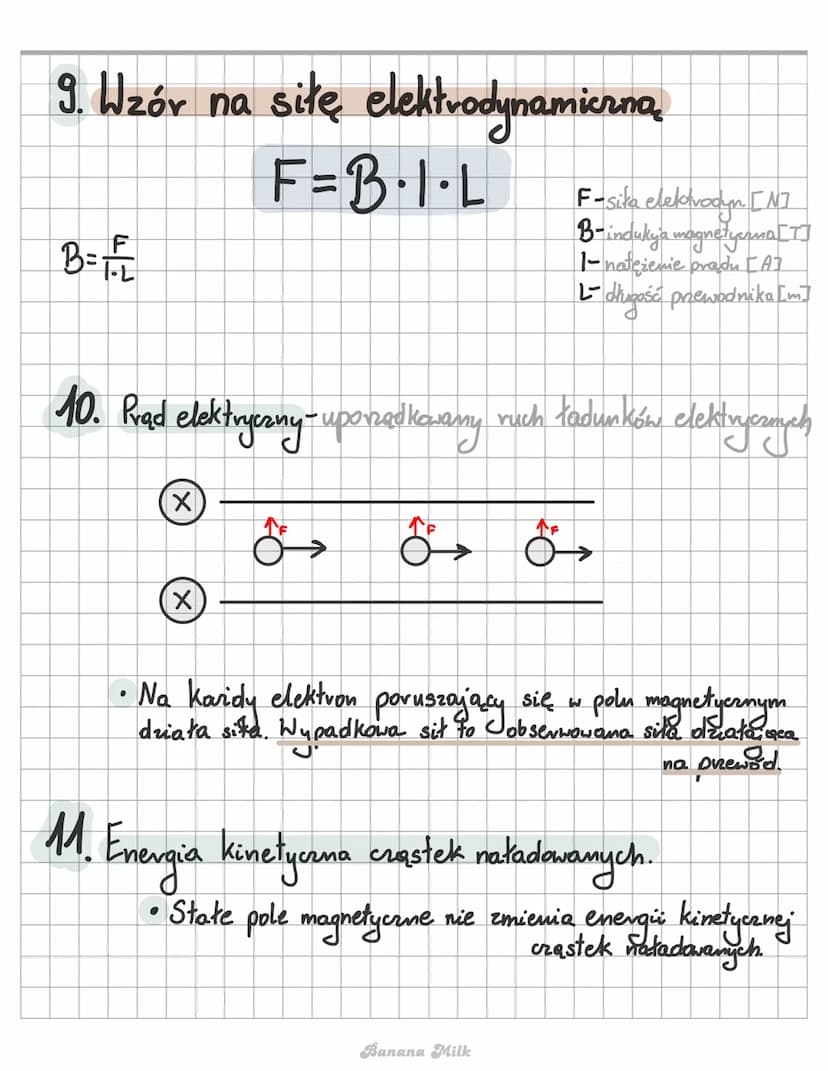 9. Wzór na siłę elektrodynamiczną
F=B·I·L
F-siła elektrodyn. [N]
B-indukcja magnetyczna [T]
I-natężenie prądu [A]
L-długość przewodnika [m]
B=F/I·L
10. Prąd elektryczny-uporządkowany ruch ładunków elektrycznych
X
F F F
X
• Na każdy elektron poruszający się w polu magnetycznym
działa siła. Wypadkowa sił to obserwowana siła działająca
na przewód.
11. Energia kinetyczna cząstek naładowanych.
• Stałe pole magnetyczne nie zmienia energii kinetycznej
cząstek naładowanych.
Banana Milk